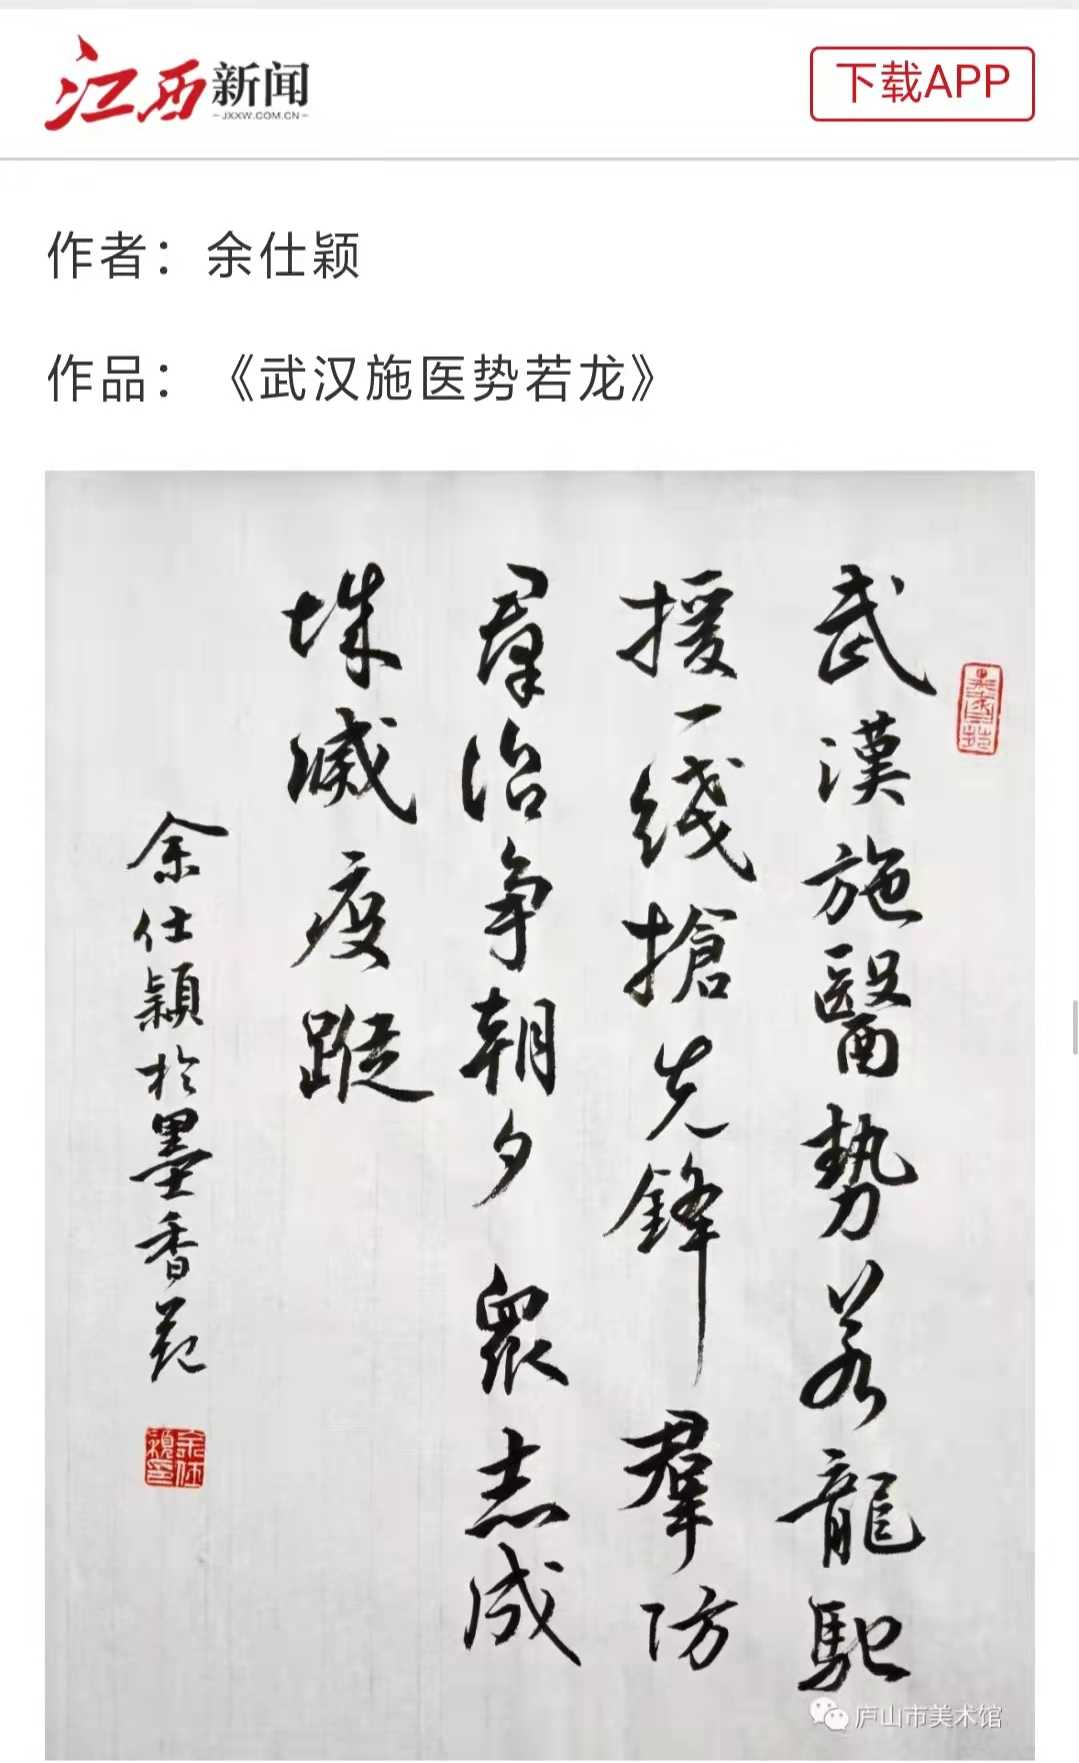 江西新闻
JXXW.COM.CN
下载APP
作者：余仕颖
作品：《武汉施医势若龙》
武漢施醫勢若龍馳
援一綫搶先鋒羣防
羣治争朝夕眾志成
城滅疫蹤
余仕穎於墨香苑
余仕穎印
庐山市美术馆